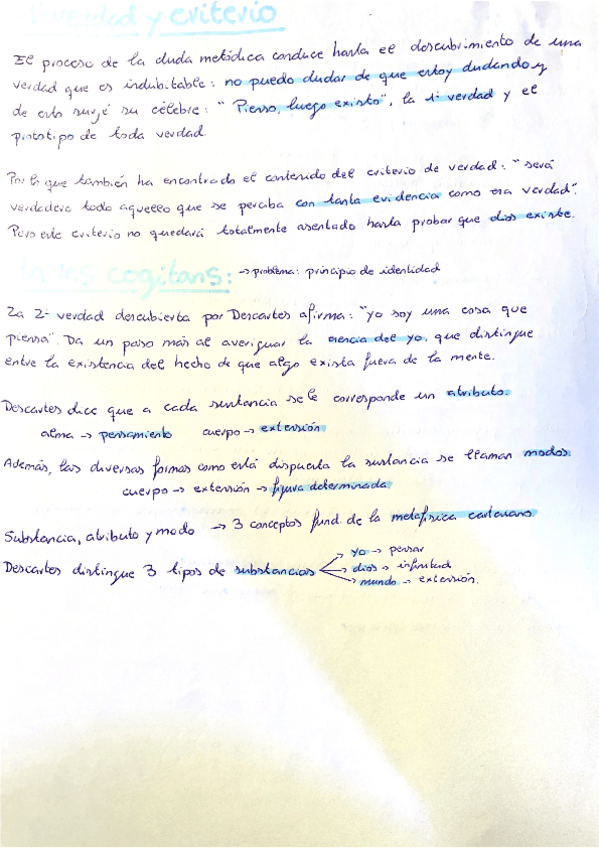 verdad y criterio
El proceso de la duda metódica conduce hasta el descubrimiento de una
verdad que es indubitable: no puedo dudar de que estoy dudando y
de esto surge su célebre: "Pienso, luego existo", la 1ª verdad y el
prototipo de toda verdad.
Por lo que también ha encontrado el contenido del criterio de verdad: "será
verdadero todo aquello que se perciba con tanta evidencia como esa verdad".
Pero este criterio no quedará totalmente asentado hasta probar que dios existe.
la res cogitans: → problema: principio de identidad
La 2ª verdad descubierta por Descartes afirma: "yo soy una cosa que
piensa". Da un paso más al averiguar la esencia del yo, que distingue
entre la existencia del hecho de que algo exista fuera de la mente.
Descartes dice que a cada sustancia se le corresponde un atributo.
alma → pensamiento cuerpo → extensión
Además, las diversas formas como está dispuesta la sustancia se llaman modos
cuerpo → extensión → figura determinada
Substancia, atributo y modo → 3 conceptos fund. de la metafísica cartesiana.
Descartes distingue 3 tipos de substancias → yo → pensar
→ dios → infinitud
→ mundo → extensión.